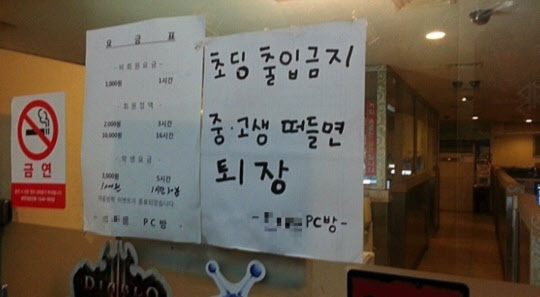 금연
요금표
- 비회원요금 -
1,000원 1시간
- 회원정액 -
2,000원 3시간
10,000원 16시간
- 학생요금 -
3,000원 5시간
PC방
초딩 출입금지
중·고생 떠들면
퇴장
- PC방 -
DIABLO